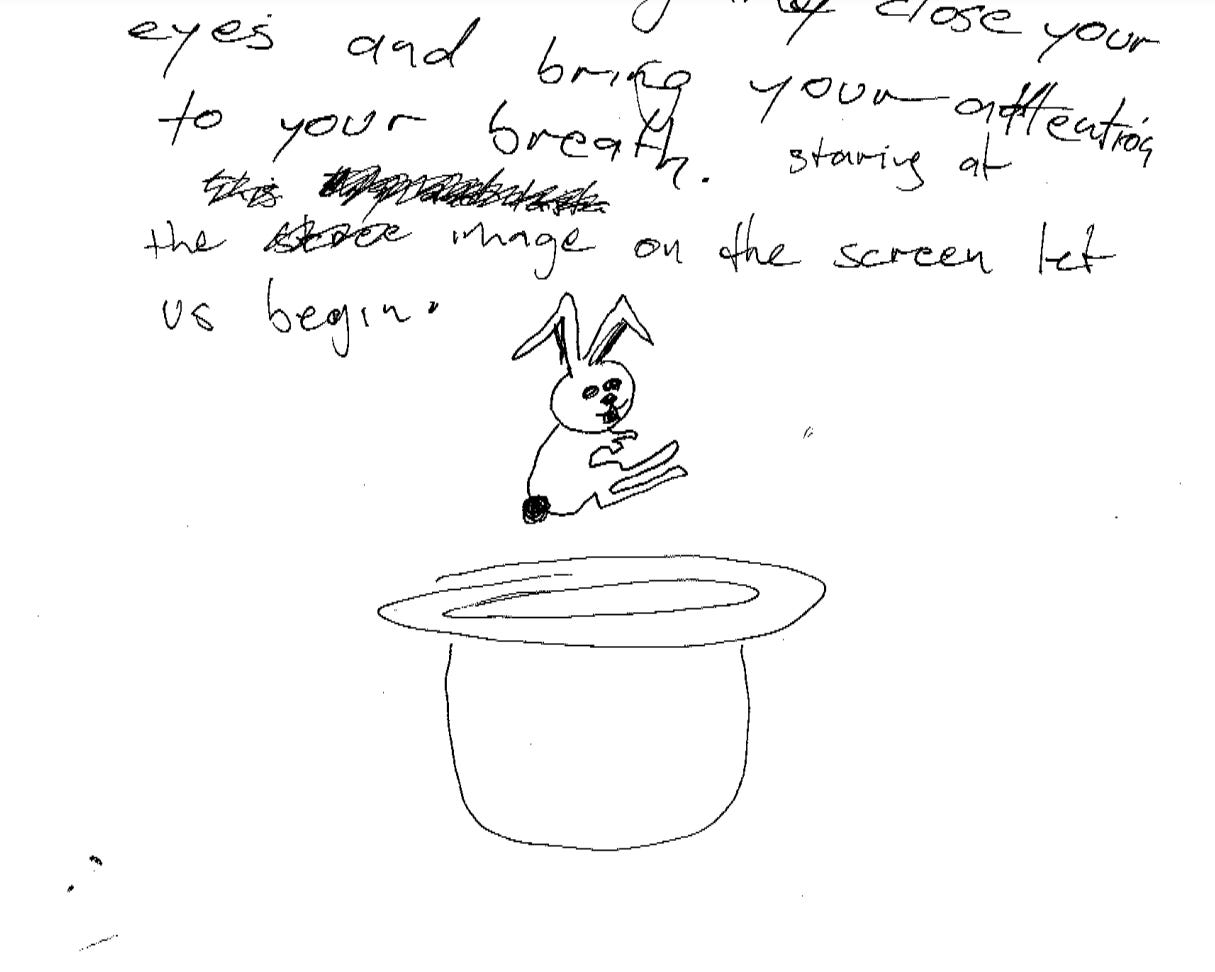 close your
eyes and bring your attention
to your breath. staring at
this
the image on the screen let
us begin.